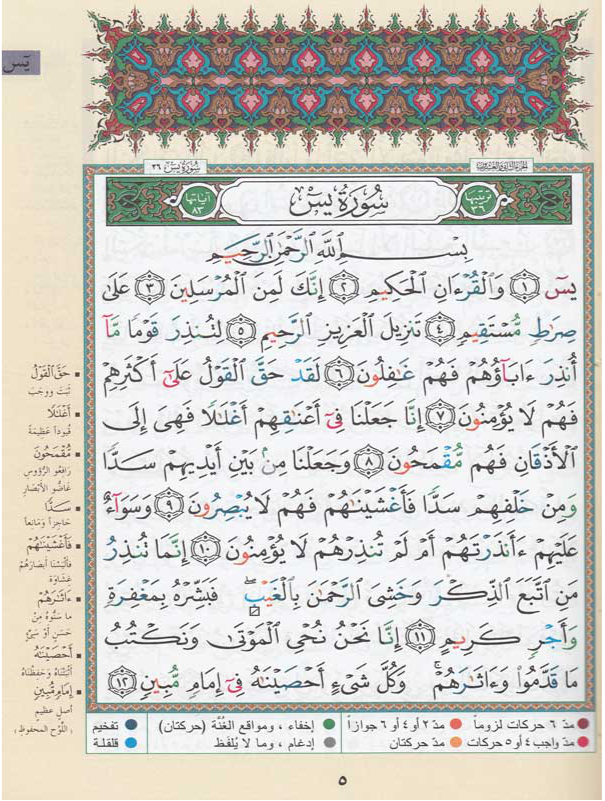 يسٓ
سُورَةُ يسٓ ٣٦
الجزء الثاني والعشرون
ترتيبها ٣٦
سُورَةُ يسٓ
آياتها ٨٣
بِسْمِ اللَّهِ الرَّحْمَٰنِ الرَّحِيمِ
يسٓ ١ وَالْقُرْءَانِ الْحَكِيمِ ٢ إِنَّكَ لَمِنَ الْمُرْسَلِينَ ٣ عَلَىٰ
صِرَٰطٍ مُّسْتَقِيمٍ ٤ تَنزِيلَ الْعَزِيزِ الرَّحِيمِ ٥ لِتُنذِرَ قَوْمًا مَّآ
أُنذِرَ ءَابَآؤُهُمْ فَهُمْ غَٰفِلُونَ ٦ لَقَدْ حَقَّ الْقَوْلُ عَلَىٰٓ أَكْثَرِهِمْ
فَهُمْ لَا يُؤْمِنُونَ ٧ إِنَّا جَعَلْنَا فِىٓ أَعْنَٰقِهِمْ أَغْلَٰلًا فَهِىَ إِلَى
الْأَذْقَانِ فَهُم مُّقْمَحُونَ ٨ وَجَعَلْنَا مِنۢ بَيْنِ أَيْدِيهِمْ سَدًّا
وَمِنْ خَلْفِهِمْ سَدًّا فَأَغْشَيْنَٰهُمْ فَهُمْ لَا يُبْصِرُونَ ٩ وَسَوَآءٌ
عَلَيْهِمْ ءَأَنذَرْتَهُمْ أَمْ لَمْ تُنذِرْهُمْ لَا يُؤْمِنُونَ ١٠ إِنَّمَا تُنذِرُ
مَنِ اتَّبَعَ الذِّكْرَ وَخَشِىَ الرَّحْمَٰنَ بِالْغَيْبِ ۖ فَبَشِّرْهُ بِمَغْفِرَةٍ
وَأَجْرٍ كَرِيمٍ ١١ إِنَّا نَحْنُ نُحْىِ الْمَوْتَىٰ وَنَكْتُبُ
مَا قَدَّمُوا۟ وَءَاثَٰرَهُمْ ۚ وَكُلَّ شَىْءٍ أَحْصَيْنَٰهُ فِىٓ إِمَامٍ مُّبِينٍ ١٢
حَقَّ الْقَوْلُ
ثَبَتَ وَوَجَبَ
أَغْلَٰلًا
قُيُوداً عَظِيمَةً
مُّقْمَحُونَ
رَافِعُو الرُّؤُوسِ
غَاضُّو الأَبْصَارِ
سَدًّا
حَاجِزاً وَمَانِعاً
فَأَغْشَيْنَٰهُمْ
فَأَلْبَسْنَا أَبْصَارَهُمْ
غِشَاوَةً
ءَاثَٰرَهُمْ
مَا سَنُّوهُ مِنْ
حَسَنٍ أَوْ سَيِّئٍ
أَحْصَيْنَٰهُ
أَثْبَتْنَاهُ وَحَفِظْنَاهُ
إِمَامٍ مُّبِينٍ
أَصْلٍ عَظِيمٍ
(اللَّوْحِ المَحْفُوظِ)
مدّ ٦ حركات لزوماً مدّ ٢ أو ٤ أو ٦ جوازاً
مدّ واجب ٤ أو ٥ حركات مدّ حركتان
إخفاء ، ومواقع الغُنَّة (حركتان)
إدغام ، وما لا يُلفَظ
تفخيم
قلقلة
٥